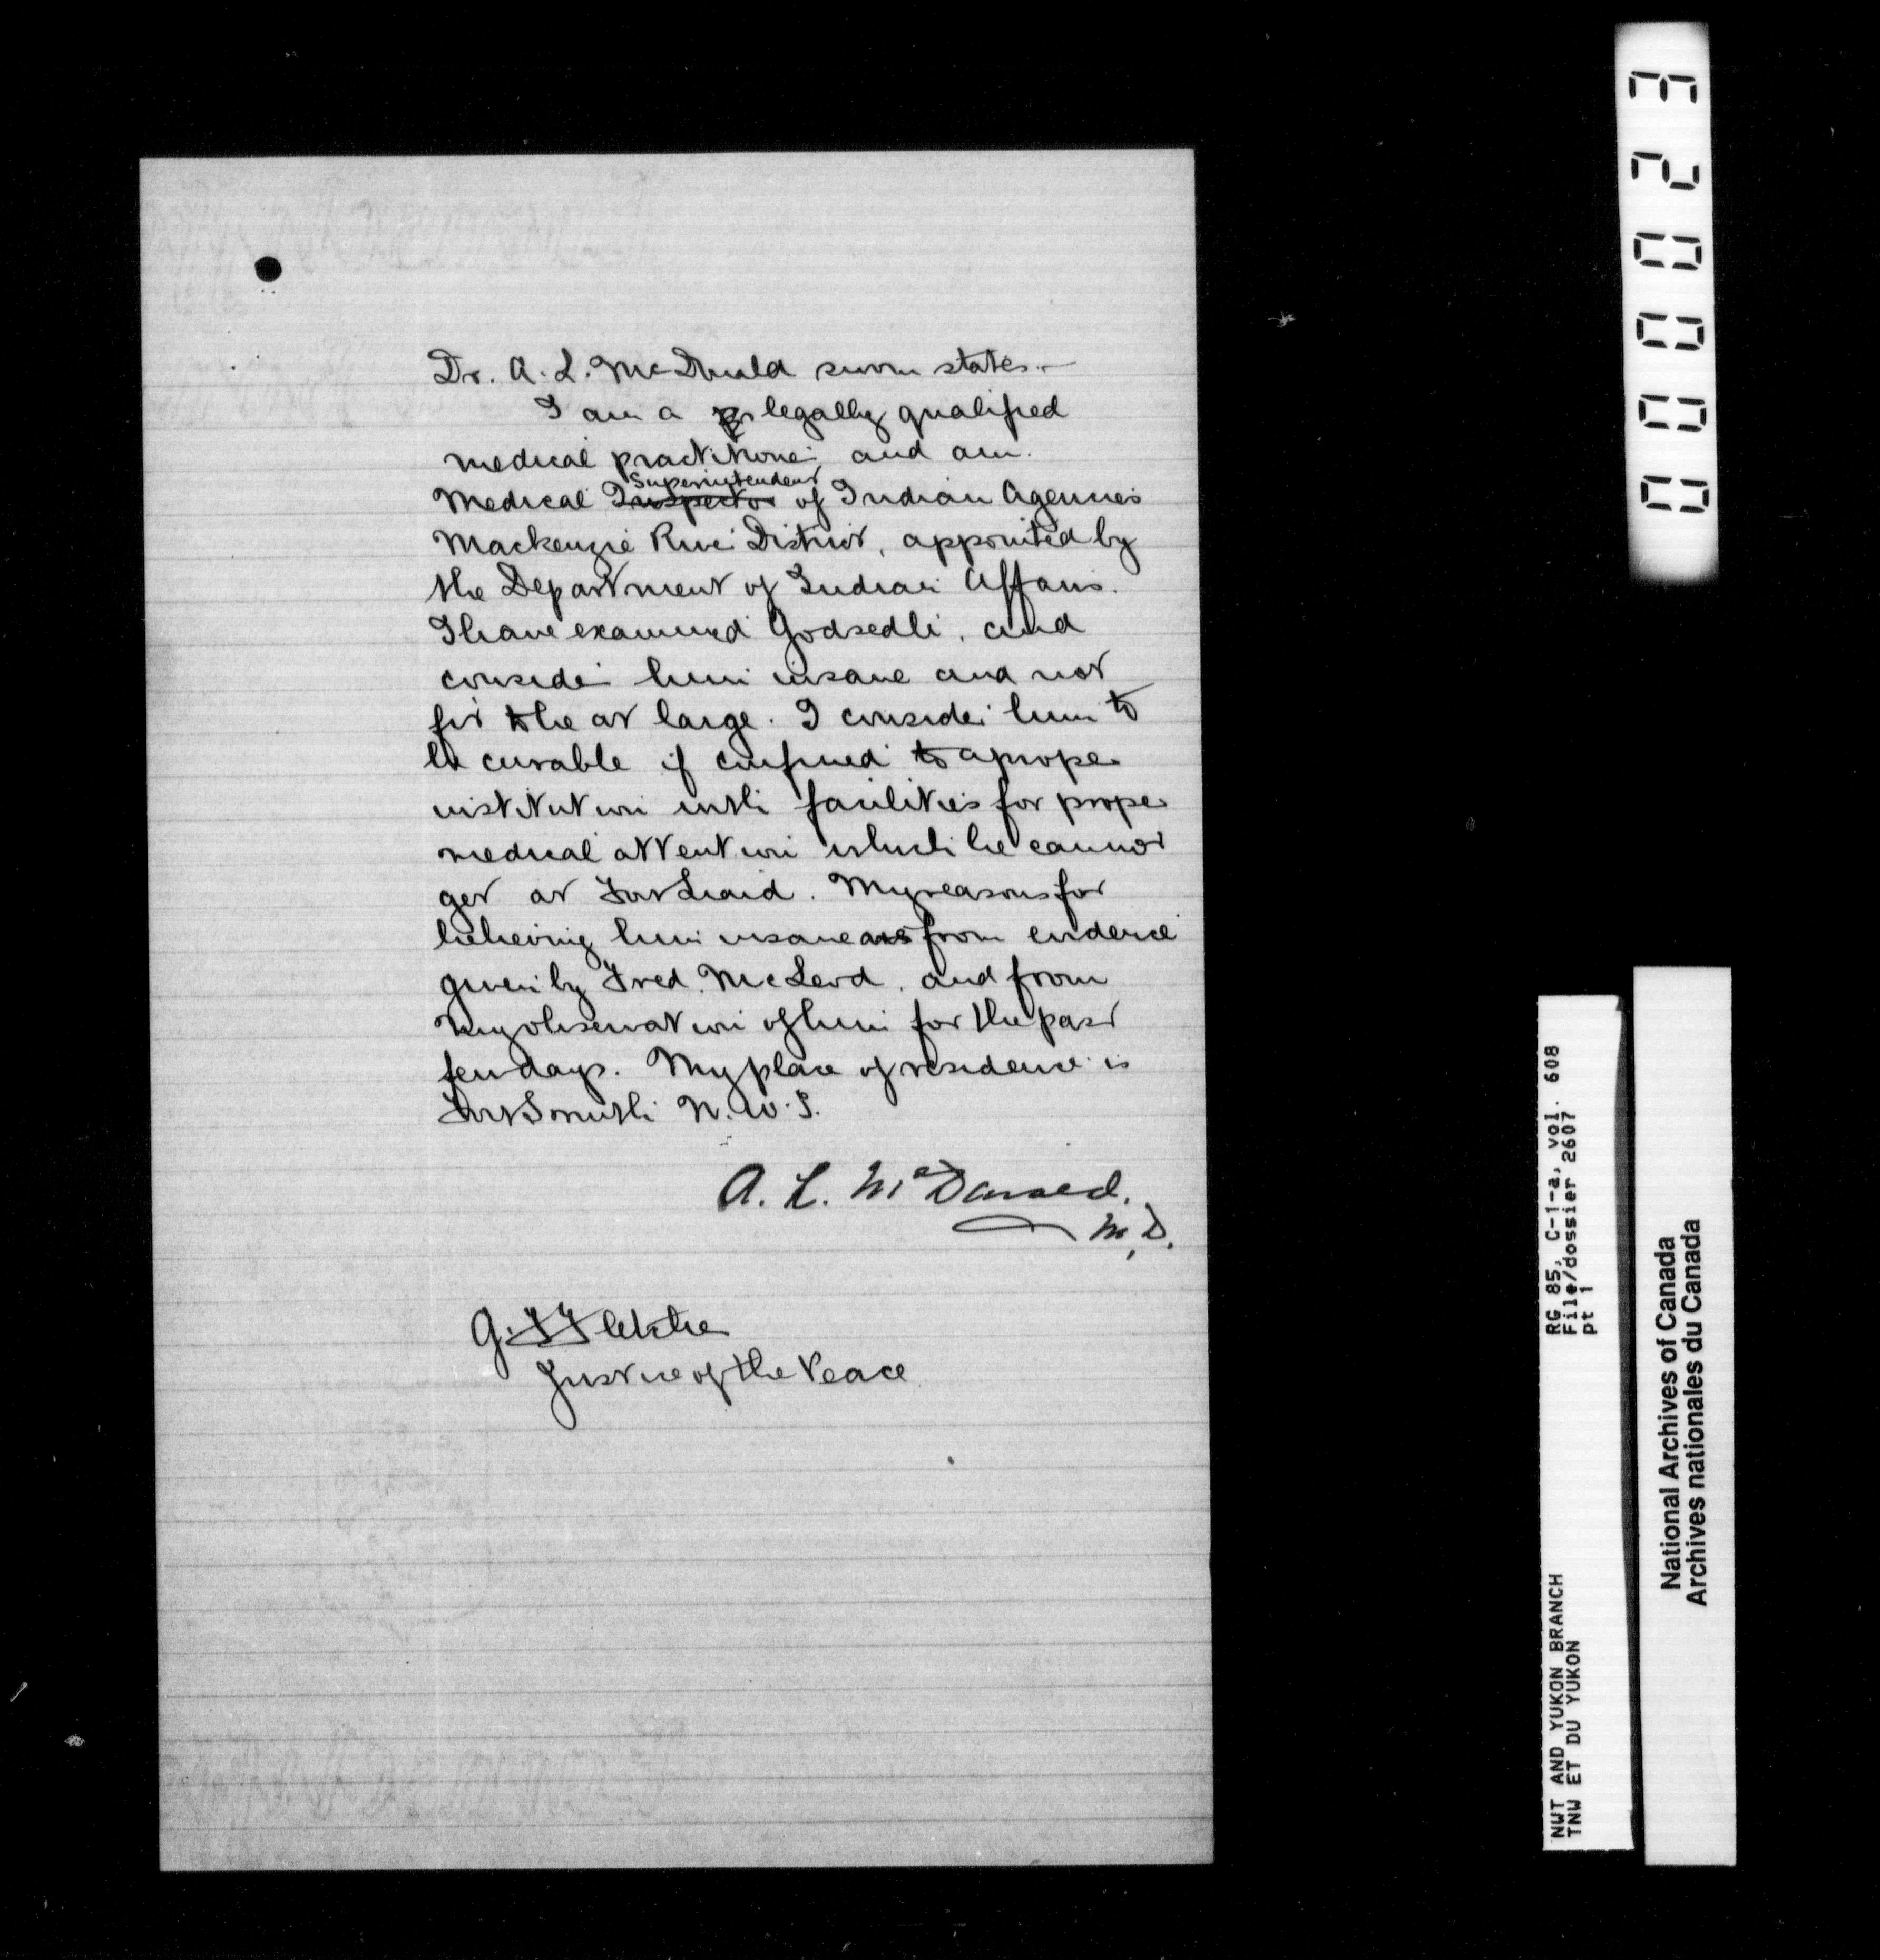 Dr. A. L. McDonald sworn states.—
I am a legally qualified
medical practitioner and am
Superintendent
Medical Inspector of Indian Agencies
Mackenzie River District, appointed by
the Department of Indian Affairs.
I have examined Godsedli, and
consider him insane and not
fit to be at large. I consider him to
be curable if confined to a proper
institution with facilities for proper
medical attention which he cannot
get at Fort Liard. My reasons for
believing him insane are from evidence
given by Fred. McLeod, and from
my observation of him for the past
few days. My place of residence is
Fort Smith N.W.T.
A. L. McDonald.
M.D.
G. T. Fletcher
Justice of the Peace
000023
RG 85, C-1-a, vol. 608
File/dossier 2607
pt 1
NWT AND YUKON BRANCH
TNW ET DU YUKON
National Archives of Canada
Archives nationales du Canada